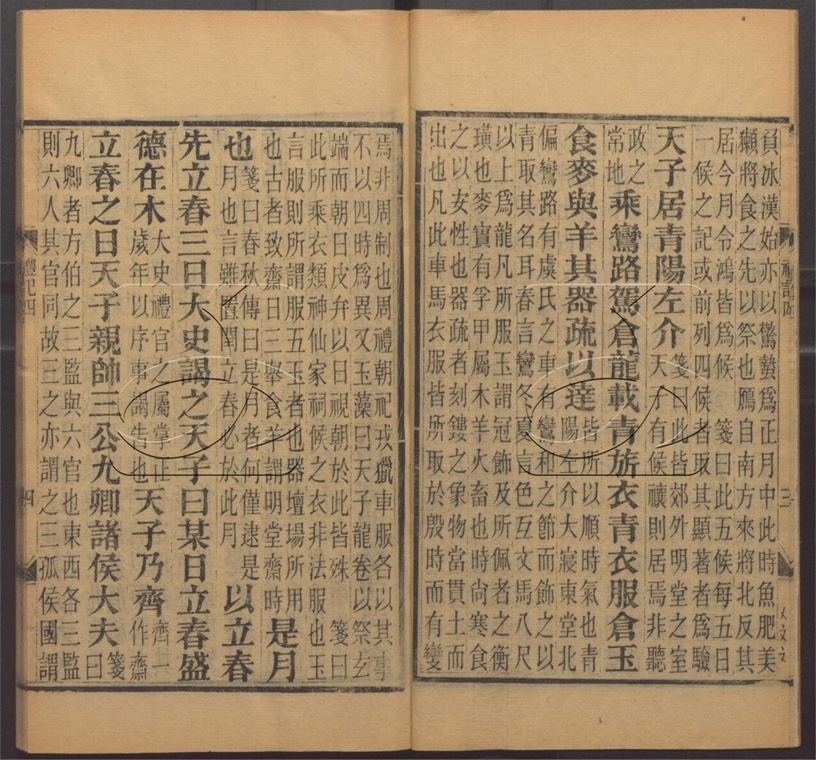 負冰漢始亦以驚蟄爲正月中此時魚肥美
獺將食之先以祭也鴈自南方來將北反其
居今月令鴻皆爲候 箋曰此五候每五日
一候之記或前列四候者取其顯著者爲驗
天子居青陽左介箋曰此皆郊外明堂之室天子有候禳則居焉非聽
政之常地乘鸞路駕倉龍載青旂衣青衣服倉玉
食麥與羊其器疏以達皆所以順時氣也青陽左介大寢東堂北
偏鸞路有虞氏之車有鸞和之節而飾之以
青取其名耳春言鸞冬夏言色互文馬八尺
以上爲龍凡所服玉謂冠飾及所佩者之衡
璜也麥實有孚甲屬木羊火畜也時尚寒食
之以女性也器疏者刻鏤之象物當貫土而
出也凡此車馬衣服皆所取於殷時而有變
焉非周制也周禮朝祀戎獵車服各以其事
不以四時爲異又玉藻曰天子龍卷以祭玄
端而朝日皮弁以日視朝於此皆殊 箋曰
此所乘衣類神仙家祠候之衣非法服也玉
言服則所謂服五玉者也器壇場所用
也古者致齋日三舉食羊謂明堂齋時是月
也箋曰春秋傳曰是月者何僅逮是月也言雖置閏立春必於此月以立春
先立春三日大史謁之天子曰某日立春盛
德在木大史禮官之屬掌正歲年以序事謁告也天子乃齊齊一作齋
立春之日天子親帥三公九卿諸侯大夫箋曰
九卿者方伯之三監與六官也東西各三監
則六人其官同故三之亦謂之三孤侯國謂
禮記四
四